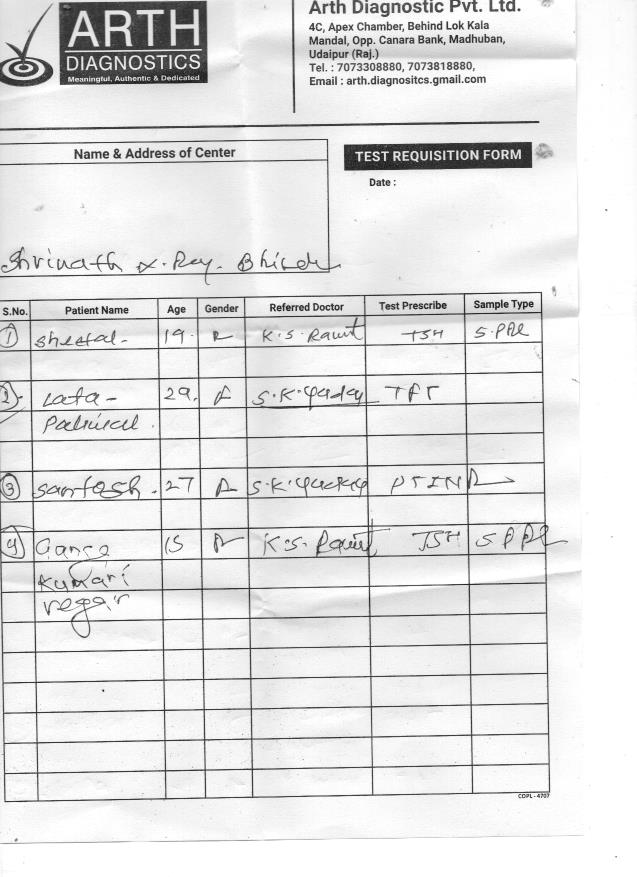 ARTH
DIAGNOSTICS
Meaningful, Authentic & Dedicated
Arth Diagnostic Pvt. Ltd.
4C, Apex Chamber, Behind Lok Kala
Mandal, Opp. Canara Bank, Madhuban,
Udaipur (Raj.)
Tel. : 7073308880, 7073818880,
Email : arth.diagnositcs.gmail.com
Name & Address of Center
TEST REQUISITION FORM
Date :
Shrinath X. Ray. Bhinder
S.No. Patient Name Age Gender Referred Doctor Test Prescribe Sample Type
1 Sheetal - 19. K.S. Rawt TSH
2. Lata - 29. S.K. Yadav TFT
3 Santosh . 27 S.K. Yadav PTINR
4 15 K.S. Rawt TSH
Kumari
regar
CDPL - 4707